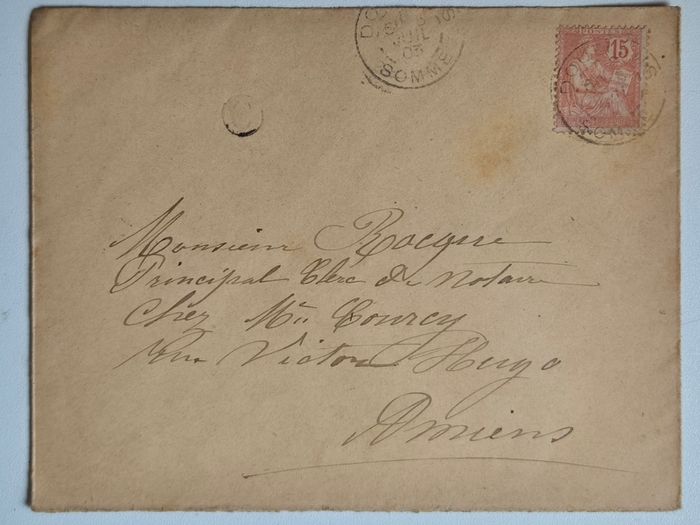 JUIL
03
SOMME
POSTES
15
SOMME
Monsieur Rocque
Principal Clerc de Notaire
Chez Me Courcy
Rue Victor Hugo
Amiens